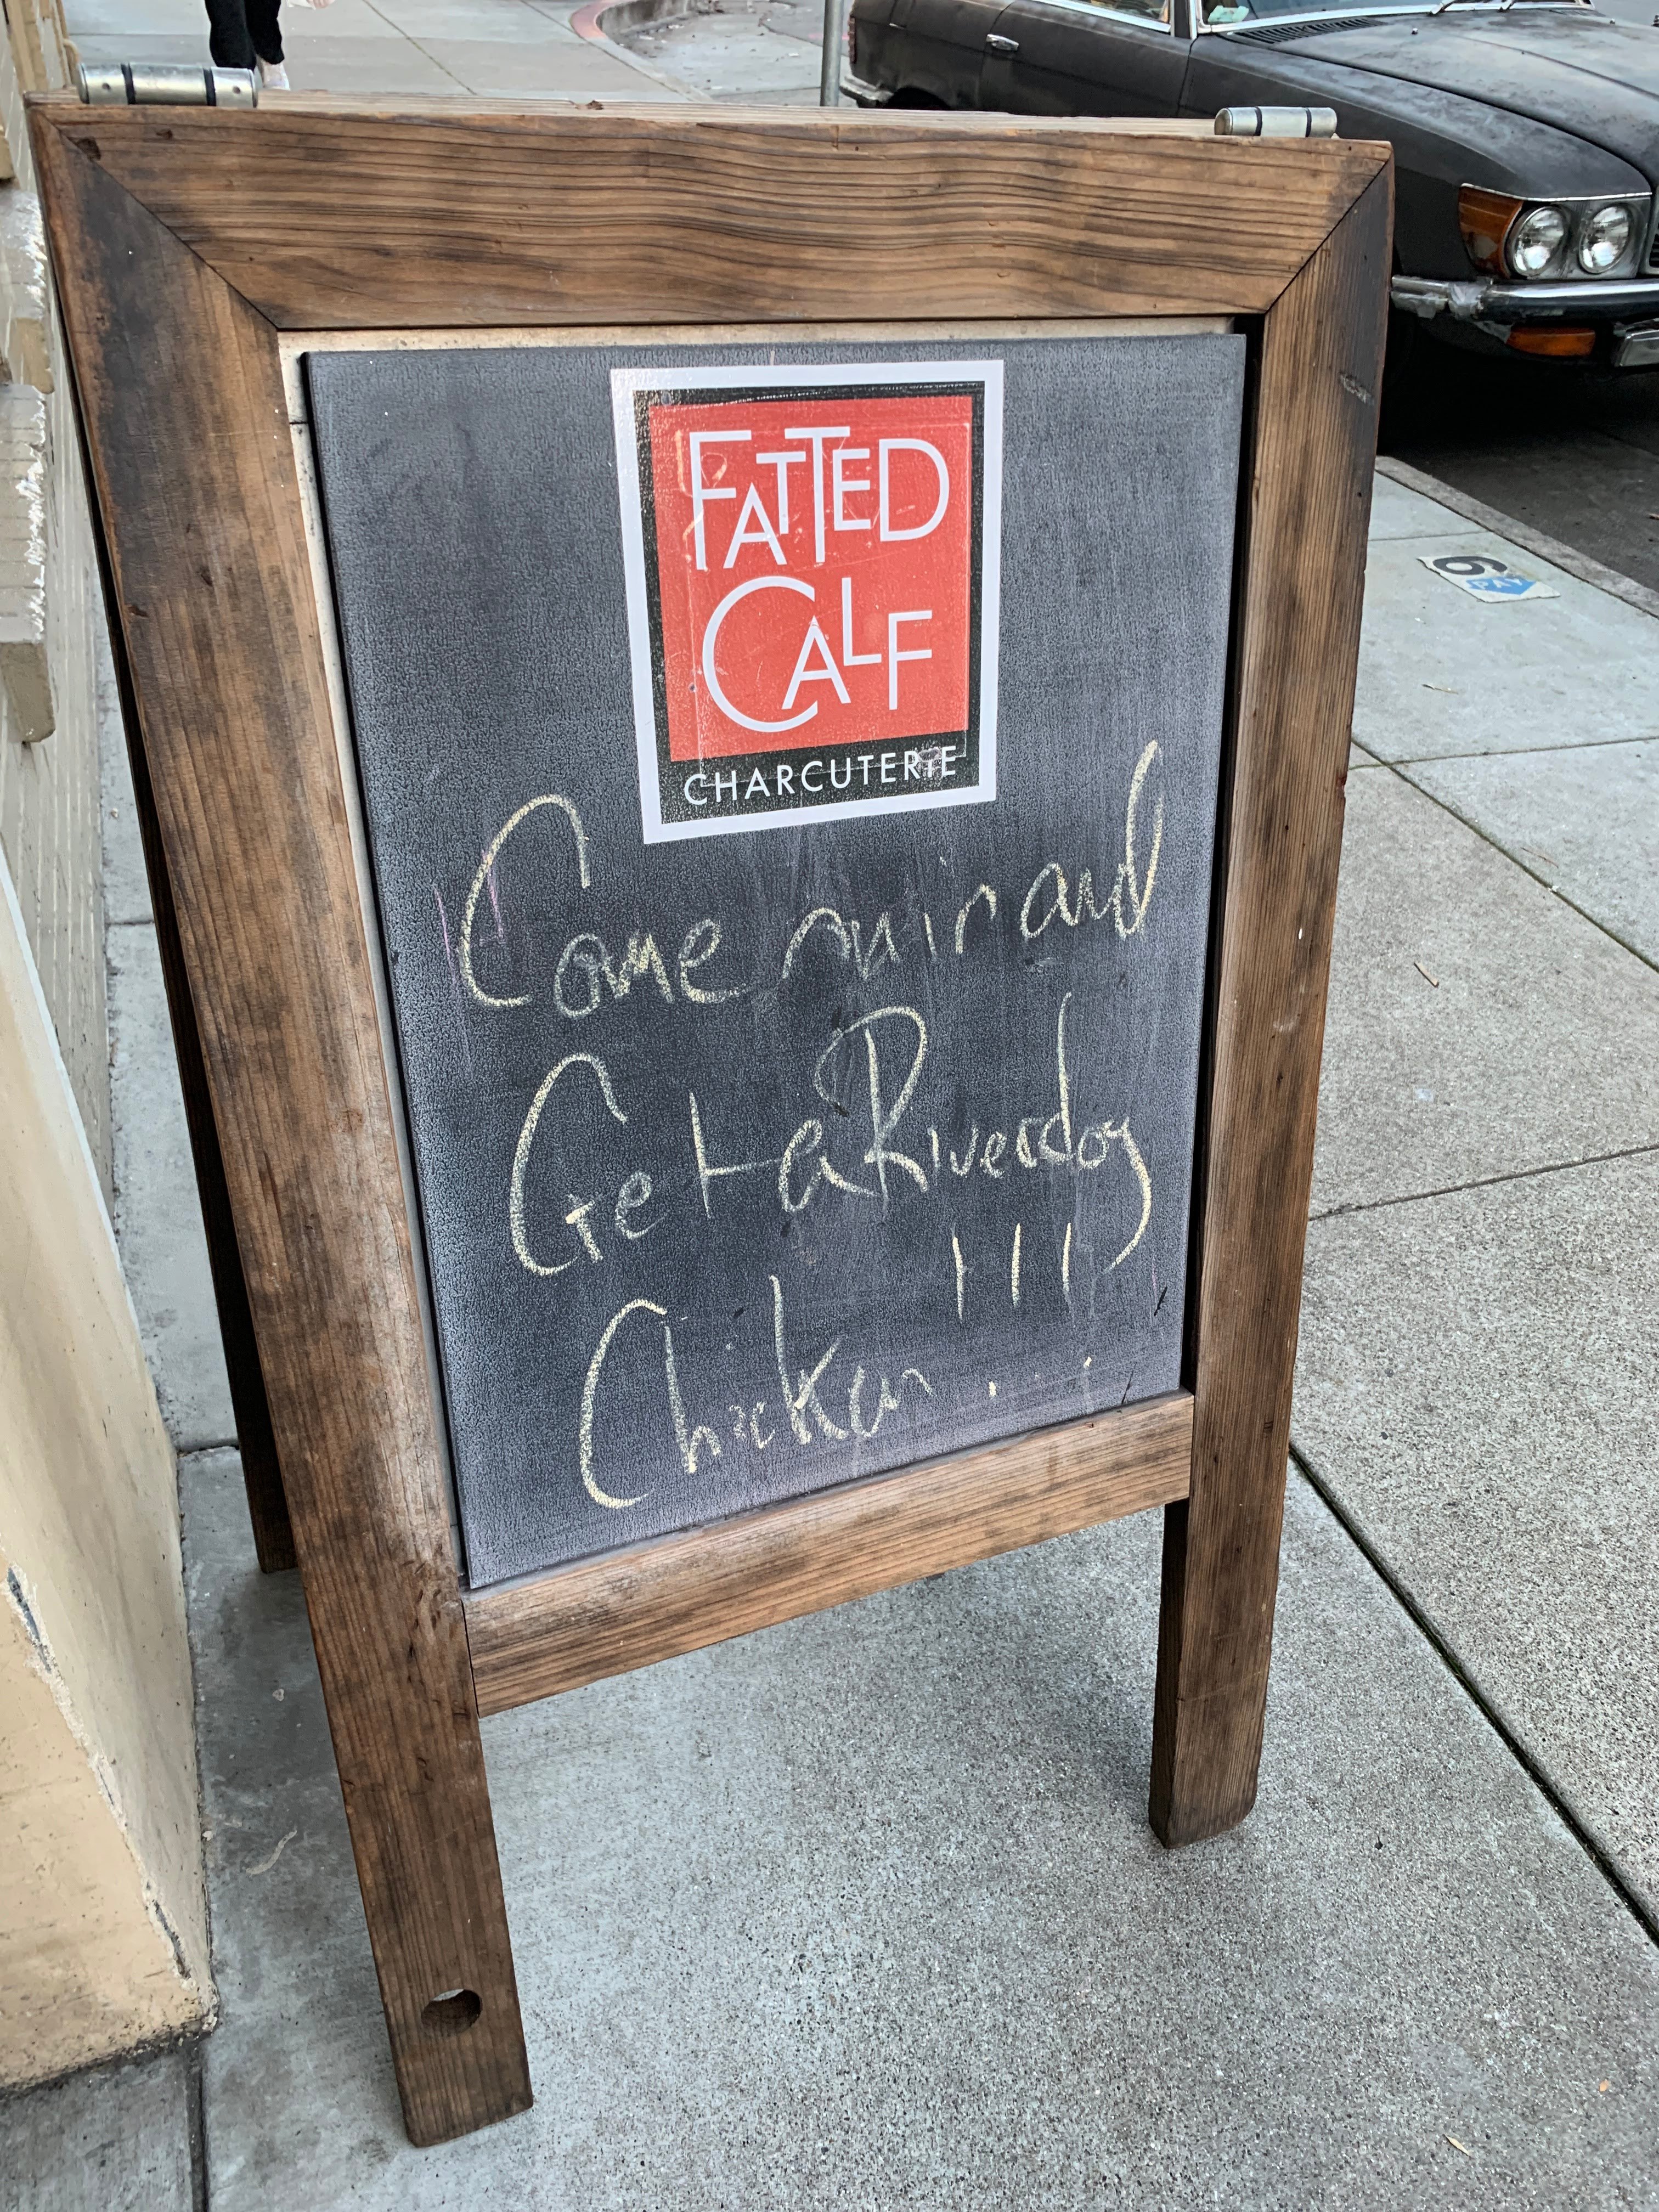 FATTED
CALF
CHARCUTERIE
Come on in and
Get a Riverdog
Chicken !!!
PAY